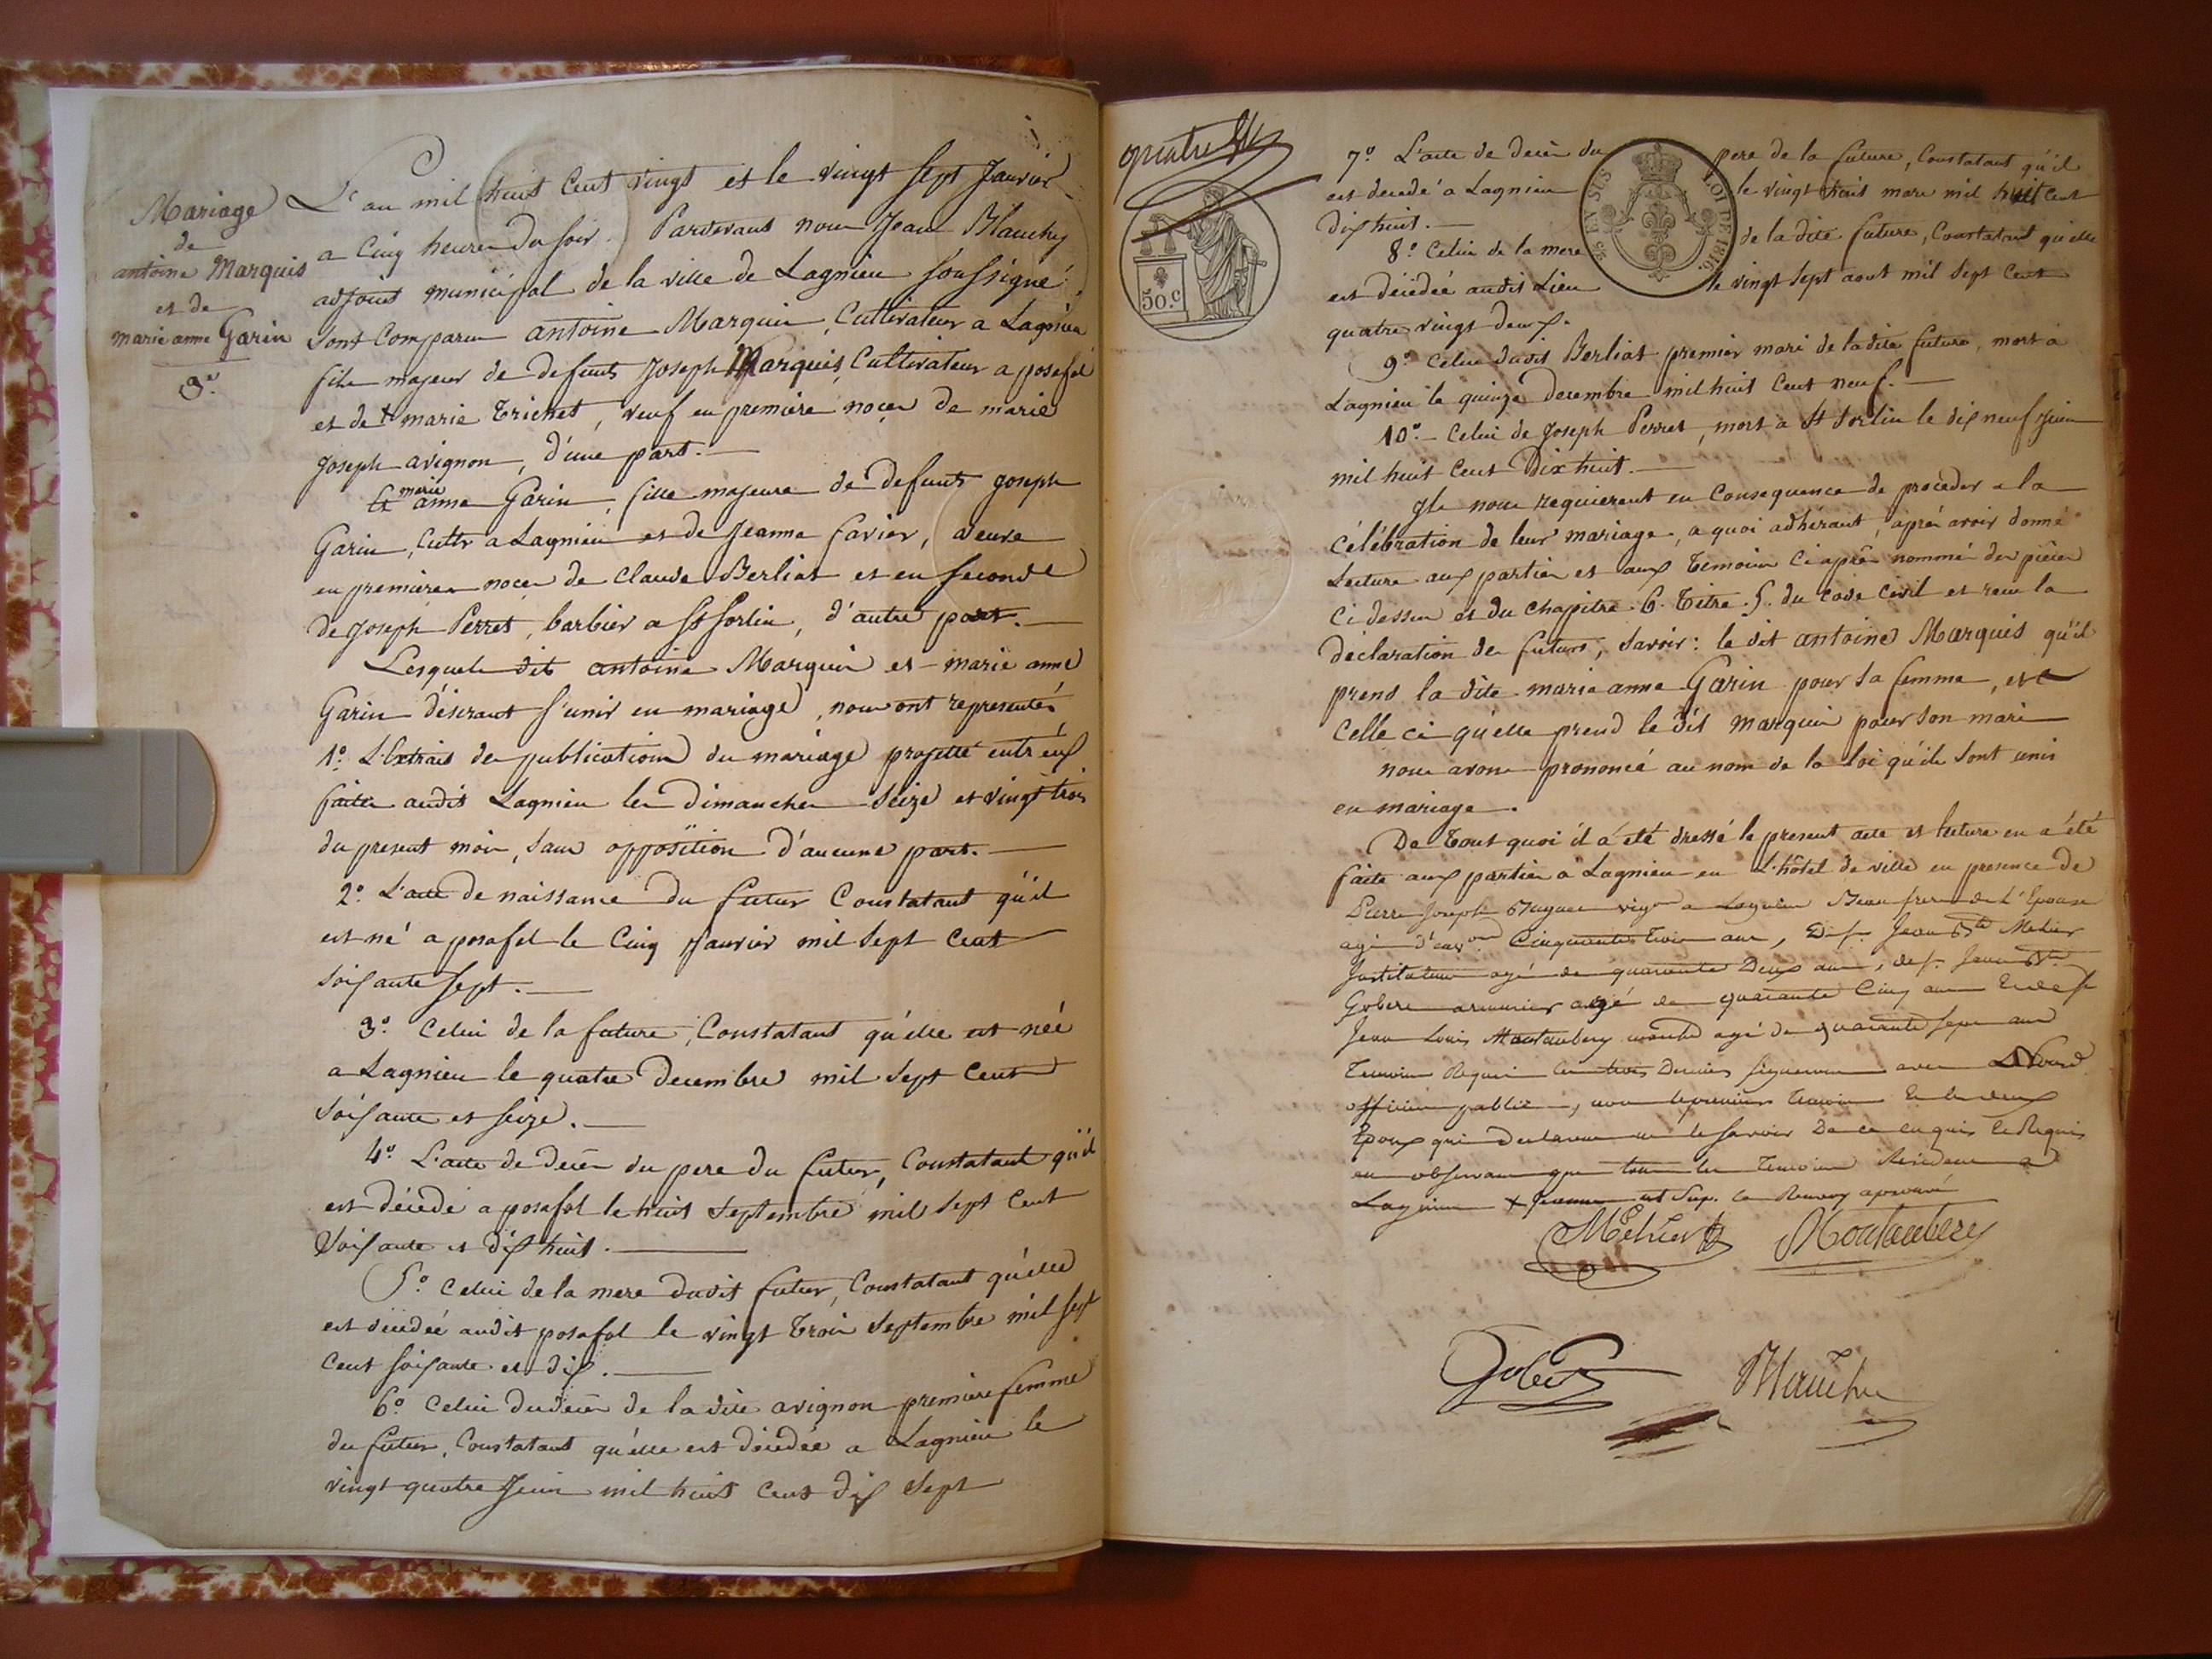 Mariage
de
antoine Marquis
et de
marie anne Garin
3e.
L'an mil huit Cent vingt et le vingt sept Janvier
a Cinq heures du soir. Pardevant nous Jean Blanchy
adjoint municipal de la ville de Lagnieu soussigné,
sont Comparus antoine Marquis, Cultivateur a Lagnieu
fils majeur de defunts Joseph Marquis, Cultivateur a posafol
et de marie Trichet, veuf en premiere noces de marie
Joseph avignon, d'une part.
Et marie anne Garin, fille majeure de defunts Joseph
Garin, Cultr a Lagnieu et de Jeanne favier, veuve
en premieres noces de Claude Berliat et en seconde
de Joseph Perret, barbier a St Sorlin, d'autre part.
Lesquels dit antoine Marquis et marie anne
Garin désirant s'unir en mariage, nous ont representés
1o. L'Extrait de publications du mariage projetté entr'eux
faites audit Lagnieu les dimanches seize et vingt trois
du present mois, sans opposition d'aucune part.
2o. L'acte de naissance du futur Constatant qu'il
est né a posafol le Cinq Janvier mil sept Cent
soixante sept.
3o. Celui de la future, Constatant qu'elle est née
a Lagnieu le quatre decembre mil sept Cent
soixante et seize.
4o. L'acte de décès du pere du futur, Constatant qu'il
est décédé a posafol le huit septembre mil sept Cent
soixante et dix huit.
5o. Celui de la mere dudit futur, Constatant qu'elle
est décédée audit posafol le vingt trois septembre mil sept
Cent soixante et dix.
6o. Celui du décès de la dite avignon premiere femme
du futur, Constatant qu'elle est décédée a Lagnieu le
vingt quatre Juin mil huit Cent dix sept
quatre
50.c
25 EN SUS LOI DE 1816.
7o. L'acte de décès du pere de la future, Constatant qu'il
est décédé a Lagnieu le vingt huit mars mil huit Cent
dix huit.
8o. Celui de la mere de la dite future, Constatant qu'elle
est décédée audit Lieu le vingt sept aout mil sept Cent
quatre vingt deux.
9o. Celui dudit Berliat premier mari de la dite future, mort a
Lagnieu le quinze decembre mil huit Cent neuf.
10o. Celui de Joseph Perret, mort a St Sorlin le dix neuf Juin
mil huit Cent Dix huit.
Ils nous requierent en Consequence de proceder a la
Célébration de leur mariage, a quoi adhérant, après avoir donné
Lecture aux parties et aux Temoins Ci après nommés des pièces
Ci dessus et du Chapitre 6. Titre 5. du Code Civil et reçu la
déclaration des futurs, savoir: le dit antoine Marquis qu'il
prend la dite marie anne Garin pour sa femme, et
Celle ci qu'elle prend le dit Marquis pour son mari
nous avons prononcé au nom de la loi qu'ils sont unis
en mariage.
De Tout quoi il a été dressé le present acte et lecture en a été
faite aux parties a Lagnieu en L'hôtel de ville en presence de
Pierre Joseph vign a Lagnieu Beau frere de l'Epouse
agé d'envon Cinquante trois ans, De s. Jean Bte Mehier
Instituteur agé de quarante Deux ans, de s. Jean Bte
Gobere armurier agé de quarante Cinq ans Et de s
Jean Louis Montaubery agé de quarante sept ans
Temoins Requis les trois Derniers signeront avec Nous
officier public, non le premier Temoin Et les deux
Epoux qui Declarent ne le savoir De ce enquis et Requis
en observant que tous les Temoins Resident a
Lagnieu X Jeanne ut Sup. Le Renvoy aprouvé
Mehier Montaubery
Gobert Blanchy